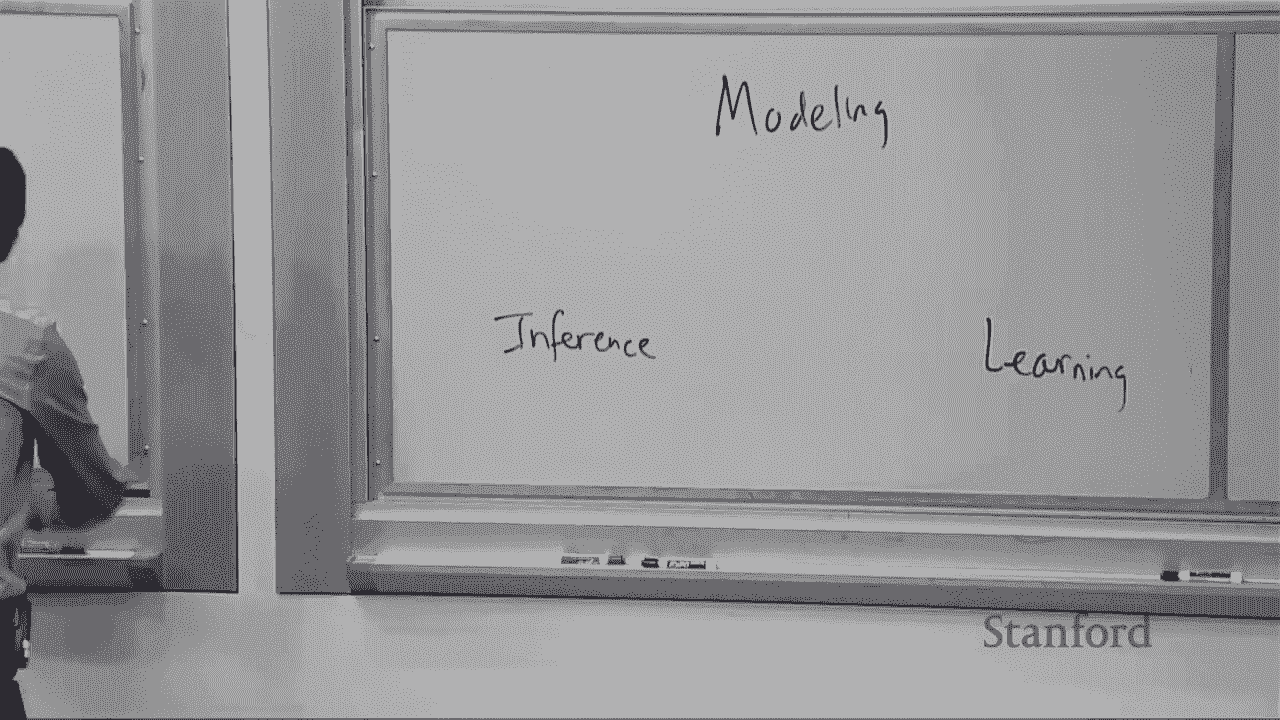 Modeling
Inference
Learning
Stanford